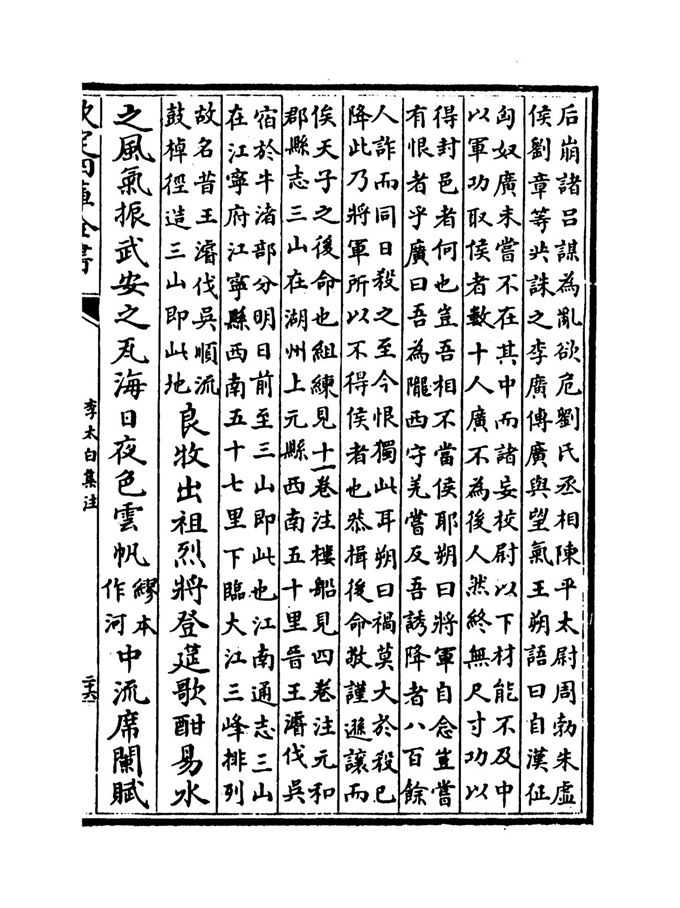 后崩諸呂謀為亂欲危劉氏丞相陳平太尉周勃朱虛
侯劉章等共誅之李廣傳廣與望氣王朔語曰自漢征
匈奴廣未嘗不在其中而諸妄校尉以下材能不及中
以軍功取侯者數十人廣不為後人然終無尺寸功以
得封邑者何也豈吾相不當侯耶朔曰將軍自念豈嘗
有恨者乎廣曰吾為隴西守羌嘗反吾誘降者八百餘
人詐而同日殺之至今恨獨此耳朔曰禍莫大於殺已
降此乃將軍所以不得侯者也恭揖後命敬謹遜讓而
俟天子之後命也組練見十一卷注樓船見四卷注元和
郡縣志三山在湖州上元縣西南五十里晉王濬伐吳
宿於牛渚部分明日前至三山即此也江南通志三山
在江寧府江寧縣西南五十七里下臨大江三峰排列
故名昔王濬伐吳順流
鼓棹徑造三山即此地
良牧出祖烈將登筵歌酣易水
之風氣振武安之瓦海日夜色雲帆
繆本
作河
中流席闌賦
欽定四庫全書
李太白集注
二六